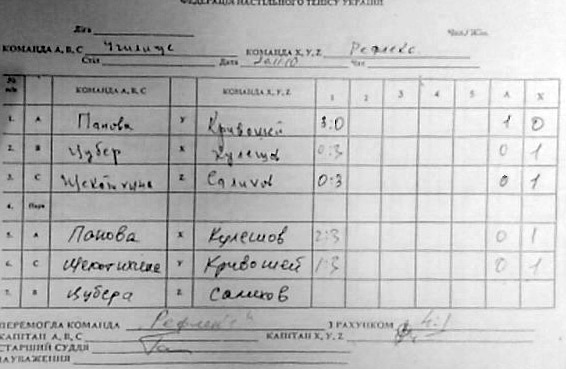 ФЕДЕРАЦІЯ НАСТІЛЬНОГО ТЕНІСУ УКРАЇНИ
Ліга Чол/Жін.
КОМАНДА A, B, C КОМАНДА X, Y, Z Рефлекс
Стіл Дата 20.11.10 Час
№ п/п КОМАНДА A, B, C КОМАНДА X, Y, Z 1 2 3 4 5 A X
1. A Панова Y Кривошей 3:0 1 0
2. B Цубер X Кулешов 0:3 0 1
3. C Щекотихина Z Салихов 0:3 0 1
4. Пара
5. A Панова X Кулешов 2:3 0 1
6. C Щекотихина Y Кривошей 1:3 0 1
7. B Цубера Z Салихов
ПЕРЕМОГЛА КОМАНДА "Рефлекс" З РАХУНКОМ 4:1
КАПІТАН A, B, C КАПІТАН X, Y, Z
СТАРШИЙ СУДДЯ
ЗАУВАЖЕННЯ